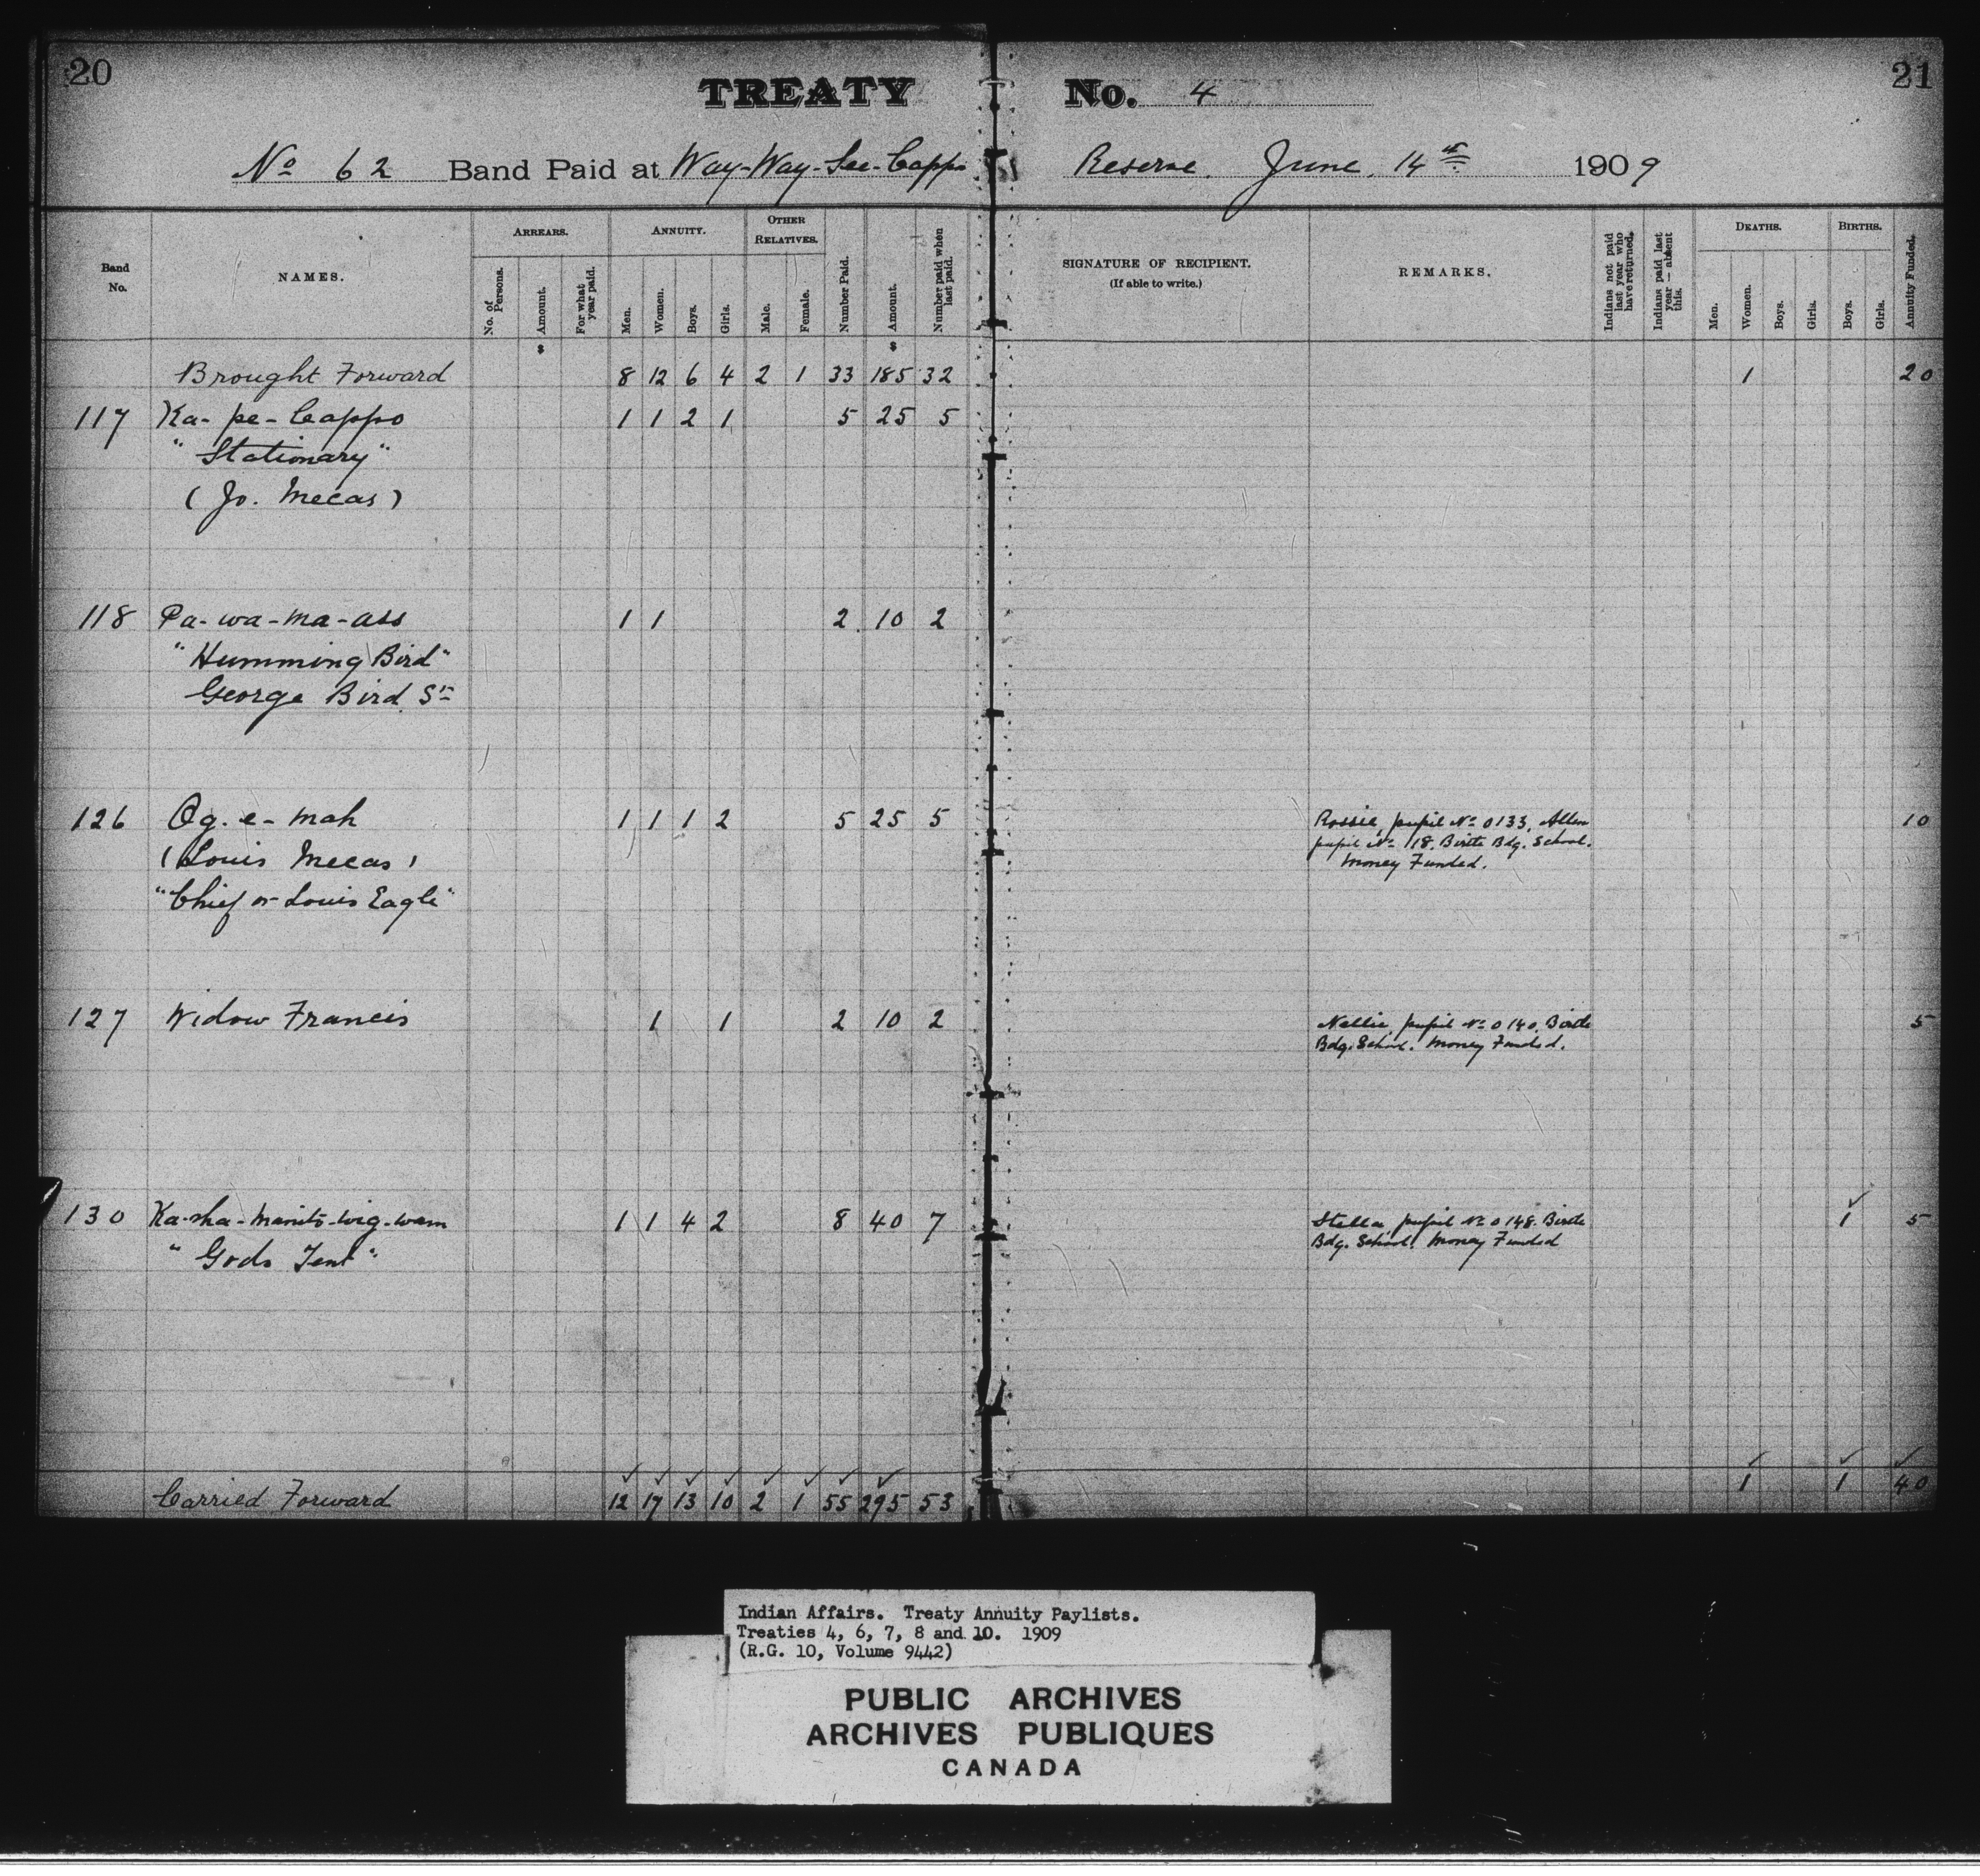 20
21
TREATY No. 4
No 62 Band Paid at Way-Way-See-Cappo Reserve. June, 14th 1909
Band No.
NAMES.
ARREARS.
No. of Persons.
Amount.
For what year paid.
ANNUITY.
Men.
Women.
Boys.
Girls.
OTHER RELATIVES.
Male.
Female.
Number Paid.
Amount.
Number paid when last paid.
SIGNATURE OF RECIPIENT.
(If able to write.)
REMARKS.
Indians not paid last year who have returned.
Indians paid last year — absent this.
DEATHS.
Men.
Women.
Boys.
Girls.
BIRTHS.
Boys.
Girls.
Annuity Funded.
$ $
Brought Forward 8 12 6 4 2 1 33 185 32 1 20
117 Ka-pe-Cappo 1 1 2 1 5 25 5
"Stationary"
(Jo. Mecas)
118 Pa-wa-ma-ass 1 1 2 10 2
"Humming Bird"
George Bird Sr
126 Og-e-mah 1 1 1 2 5 25 5 Rossie, pupil No 0133, Allen 10
(Louis Mecas) pupil No 118. Birtle Bdg. School.
"Chief or Louis Eagle" Money Funded.
127 Widow Francis 1 1 2 10 2 Nellie, pupil No 0140, Birtle 5
Bdg. School. Money Funded.
130 Ka-sha-manito-wig-wam 1 1 4 2 8 40 7 Stella, pupil No 0148. Birtle 1 5
"Gods Tent" Bdg. School. Money Funded
Carried Forward 12 17 13 10 2 1 55 295 53 1 1 40
Indian Affairs. Treaty Annuity Paylists.
Treaties 4, 6, 7, 8 and 10. 1909
(R.G. 10, Volume 9442)
PUBLIC ARCHIVES
ARCHIVES PUBLIQUES
CANADA